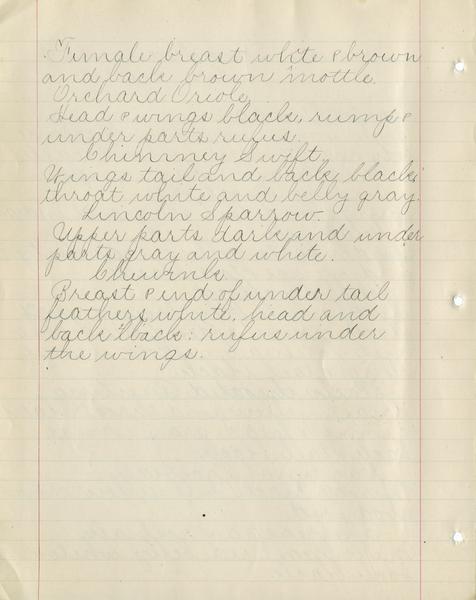 Female breast white & brown
and back brown mottle.
Orchard Oriole.
Head & wings black, rump &
under parts rufus.
Chimney Swift.
Wings tail and back black,
throat white and belly gray.
Lincoln Sparrow.
Upper parts dark and under
parts gray and white.
Chewink.
Breast & end of under tail
feathers white, head and
back black: rufus under
the wings.